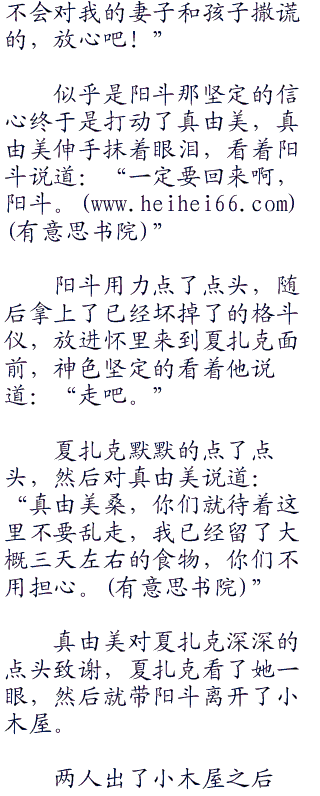 不会对我的妻子和孩子撒谎
的，放心吧！”
似乎是阳斗那坚定的信
心终于是打动了真由美，真
由美伸手抹着眼泪，看着阳
斗说道：“一定要回来啊，
阳斗。(www.heihei66.com)
(有意思书院)”
阳斗用力点了点头，随
后拿上了已经坏掉了的格斗
仪，放进怀里来到夏扎克面
前，神色坚定的看着他说
道：“走吧。”
夏扎克默默的点了点
头，然后对真由美说道：
“真由美桑，你们就待着这
里不要乱走，我已经留了大
概三天左右的食物，你们不
用担心。(有意思书院)”
真由美对夏扎克深深的
点头致谢，夏扎克看了她一
眼，然后就带阳斗离开了小
木屋。
两人出了小木屋之后